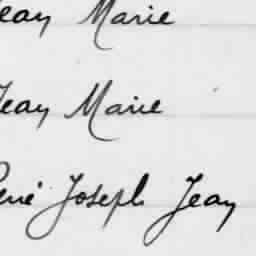 Jean Marie
Jean Marie
René Joseph Jean